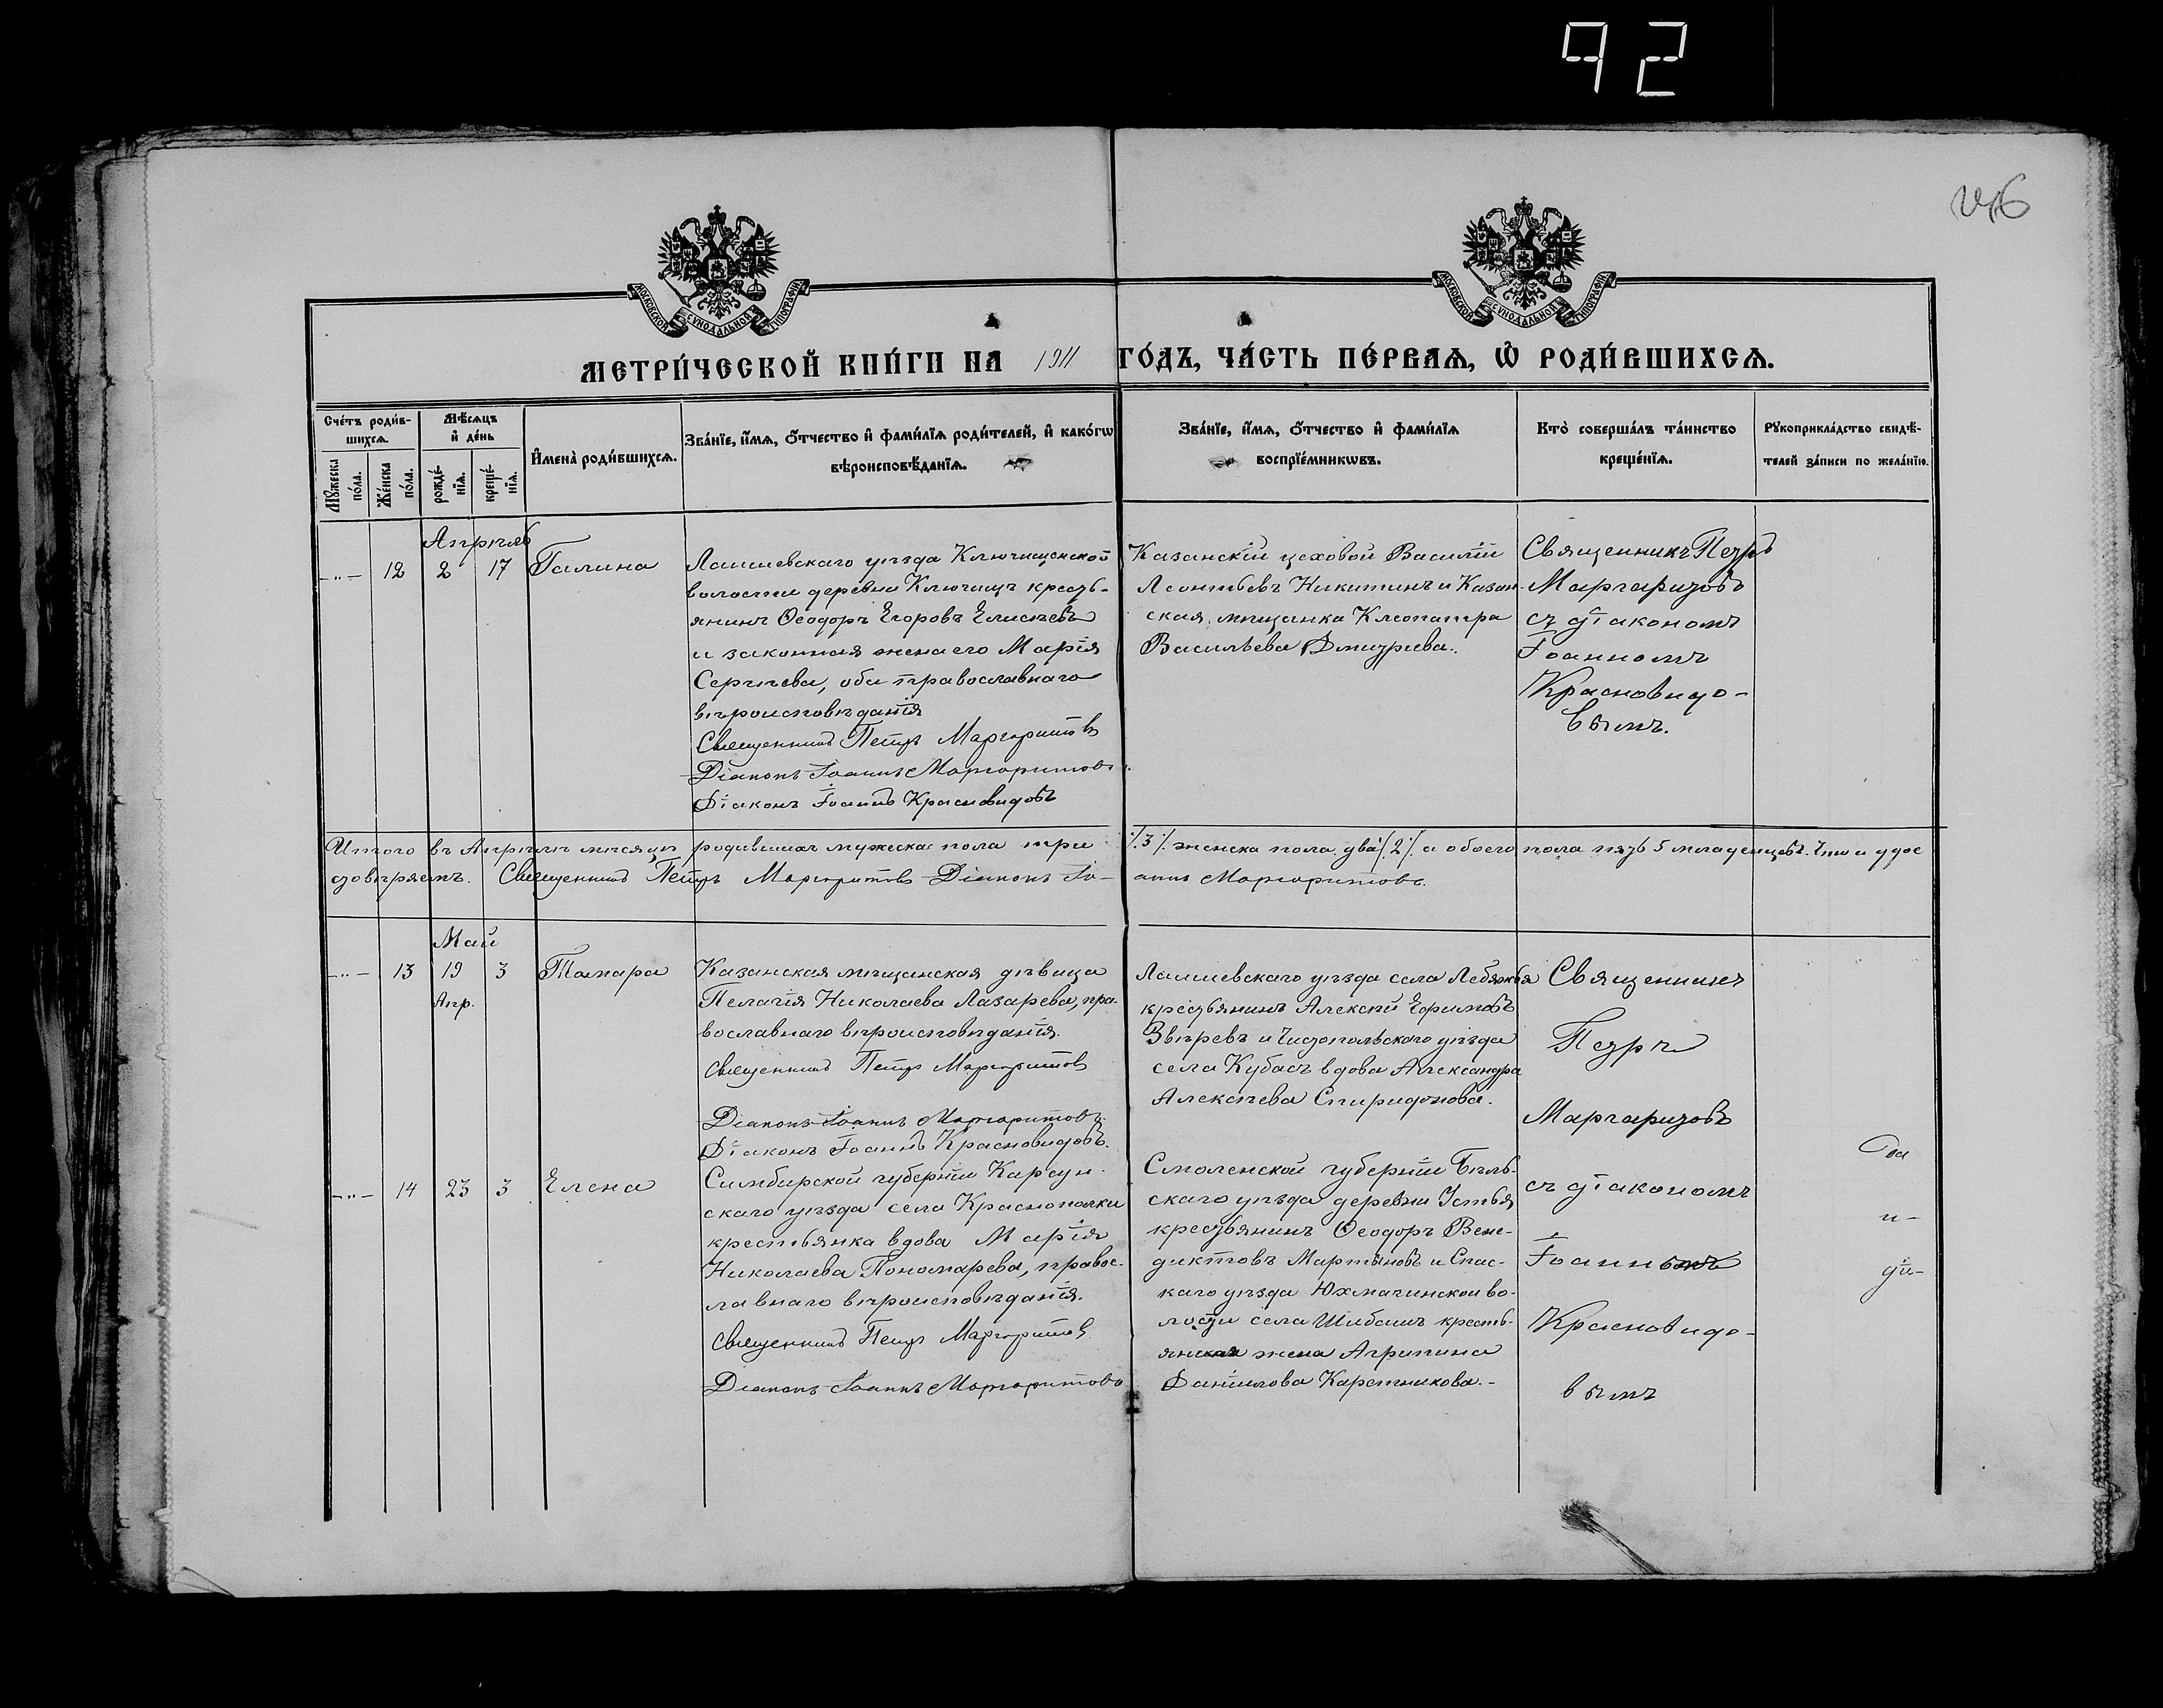 92
МОСКОВСКОЙ СѴНОДАЛЬНОЙ ТИПОГРАФІИ
МОСКОВСКОЙ СѴНОДАЛЬНОЙ ТИПОГРАФІИ
МЕТРИ́ЧЕСКОЙ КНИ́ГИ НА 1911 ГО́ДЪ, ЧА́СТЬ ПЕ́РВАѦ, Ѡ҆ РОДИ́ВШИХСѦ.
Сче́тъ роди́в-
шихсѧ.
Мꙋ́жеска по́ла.
Же́нска по́ла.
Мѣ́сѧцъ
и҆ де́нь
рожде́-
нїѧ.
креще́-
нїѧ.
И҆мена̀ роди́вшихсѧ.
Зва́нїе, и҆́мѧ, ѻ҆́тчество и҆ фами́лїѧ роди́телей, и҆ како́гѡ
вѣроисповѣ́данїѧ.
Зва́нїе, и҆́мѧ, ѻ҆́тчество и҆ фами́лїѧ
воспрїе́мникѡвъ.
Кто̀ соверша́лъ та́инство
креще́нїѧ.
Рꙋкоприкла́дство свидѣ́-
телей за́писи по жела́нїю.
Апрѣль
-"- 12 2 17 Галина
Лаишевскаго уѣзда Ключищенской
волости деревни Ключищъ кресть-
янинъ Ѳеодоръ Егоровъ Елисѣевъ
и законная жена его Марія
Сергѣева, оба православнаго
вѣроисповѣданія
Священникъ Петръ Маргаритовъ
Діаконъ Іоаннъ Маргаритовъ.
Діаконъ Іоаннъ Красновидовъ
Казанскій цеховой Василій
Леонтьевъ Никитинъ и Казан-
ская мѣщанка Клеопатра
Васильева Дмитріева.
Священникъ Петръ
Маргаритовъ
съ діакономъ
Іоанномъ
Красновидо-
вымъ.
Итого въ Апрѣлѣ мѣсяцѣ родившихся мужеска пола три /.3./ женска пола два /.2./ а обоего пола пять 5 младенцевъ. Что и удос
товѣряемъ. Священникъ Петръ Маргаритовъ Діаконъ Іо-
аннъ Маргаритовъ.
Май
-"- 13 19 3 Тамара
Апр.
Казанская мѣщанская дѣвица
Пелагія Николаева Лазарева, пра-
вославнаго вѣроисповѣданія.
Священникъ Петръ Маргаритовъ
Діаконъ Іоаннъ Маргаритовъ.
Діаконъ Іоаннъ Красновидовъ.
Лаишевскаго уѣзда села Лебяжья
крестьянинъ Алексій Ефимовъ
Звѣревъ и Чистопольскаго уѣзда
села Кубасъ вдова Александра
Алексѣева Спиридонова.
Священникъ
Петръ
Маргаритовъ
-"- 14 23 3 Елена
Симбирской губерніи Карсун-
скаго уѣзда села Краснополки
крестьянка вдова Марія
Николаева Пономарева, правос-
лавнаго вѣроисповѣданія.
Священникъ Петръ Маргаритовъ
Діаконъ Іоаннъ Маргаритовъ
Смоленской губерніи Бѣль-
скаго уѣзда деревни Устья
крестьянинъ Ѳеодоръ Вене-
диктовъ Мартыновъ и Спас-
каго уѣзда Юхмачинской во-
лости села Шибашъ кресть-
янская жена Агрипина
Даніилова Каретникова.-
съ діакономъ
Іоанномъ
Красновидо-
вымъ